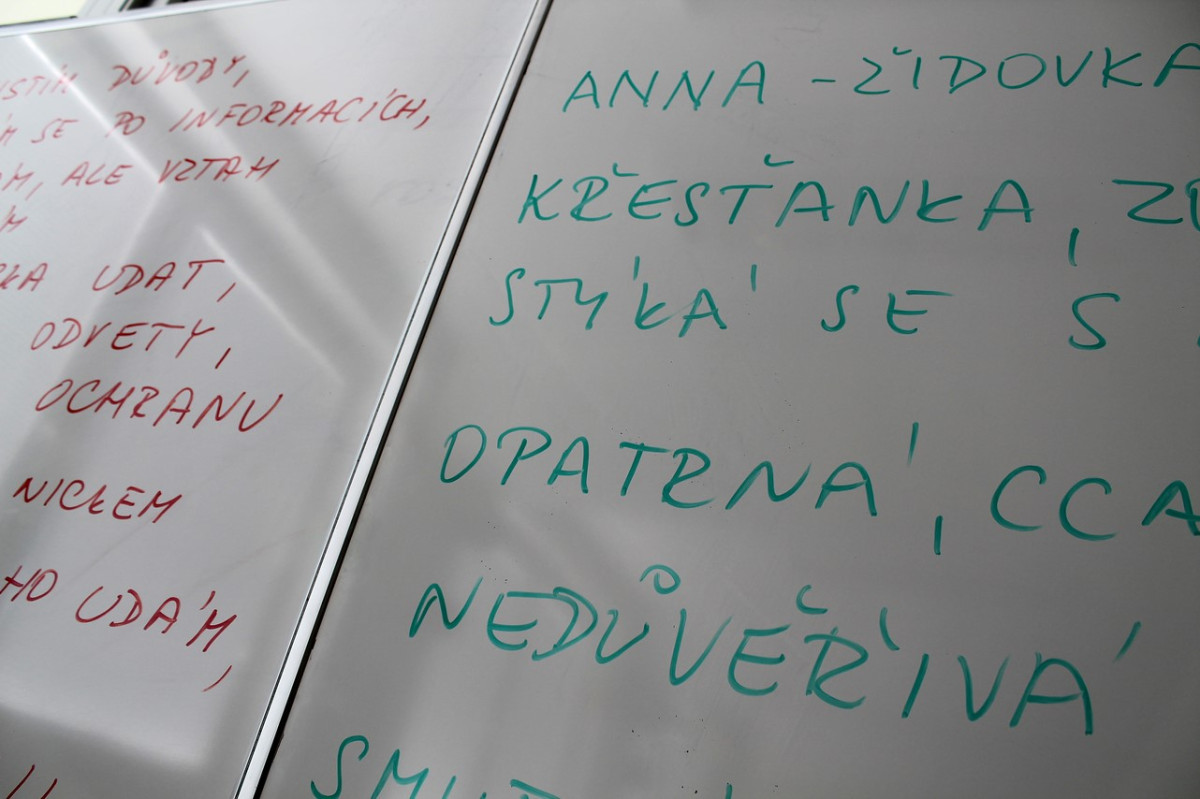 DŮVODY,
SE PO INFORMACÍCH,
ALE VZTAH
UDAT,
ODVETY,
OCHRANU
NICKEM
HO UDÁM,
ANNA - ŽIDOVKA
KŘESŤANKA,
STÝKÁ SE S
OPATRNÁ, CCA
NEDŮVĚŘIVÁ